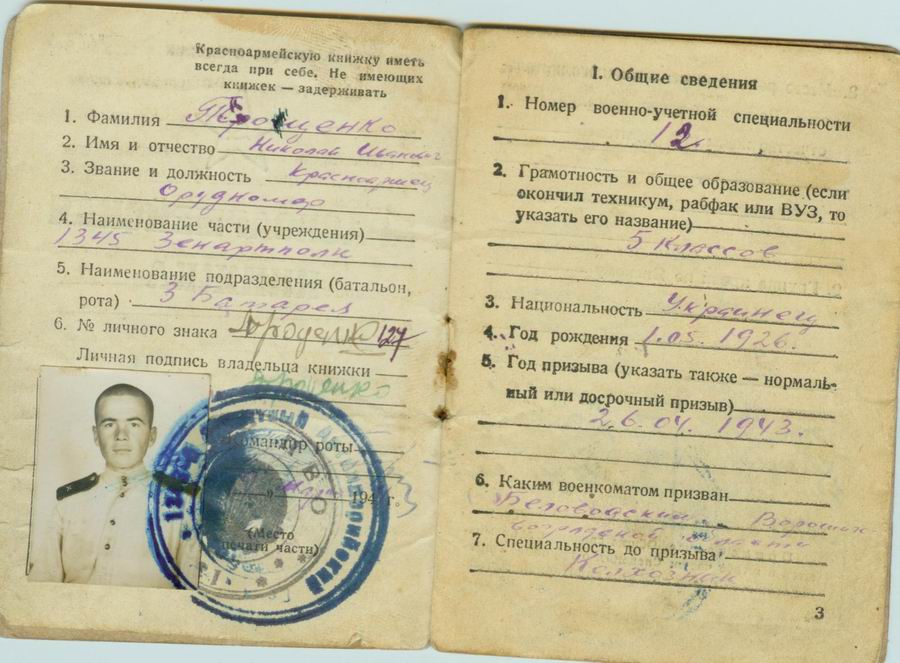 Красноармейскую книжку иметь
всегда при себе. Не имеющих
книжек — задерживать
1. Фамилия
2. Имя и отчество Николай Иванович
3. Звание и должность Красноармеец
Орудномер
4. Наименование части (учреждения)
1345 Зенартполк
5. Наименование подразделения (батальон,
рота) 3 Батарея
6. № личного знака 127
Личная подпись владельца книжки
Командир роты
194 г.
(Место
печати части)
I. Общие сведения
1. Номер военно-учетной специальности
12
2. Грамотность и общее образование (если
окончил техникум, рабфак или ВУЗ, то
указать его название)
5 классов
3. Национальность Украинец
4. Год рождения 1.05.1926.
5. Год призыва (указать также — нормаль-
ный или досрочный призыв)
26.04.1943.
6. Каким военкоматом призван
Беловодским
области
7. Специальность до призыва
Колхозник
3